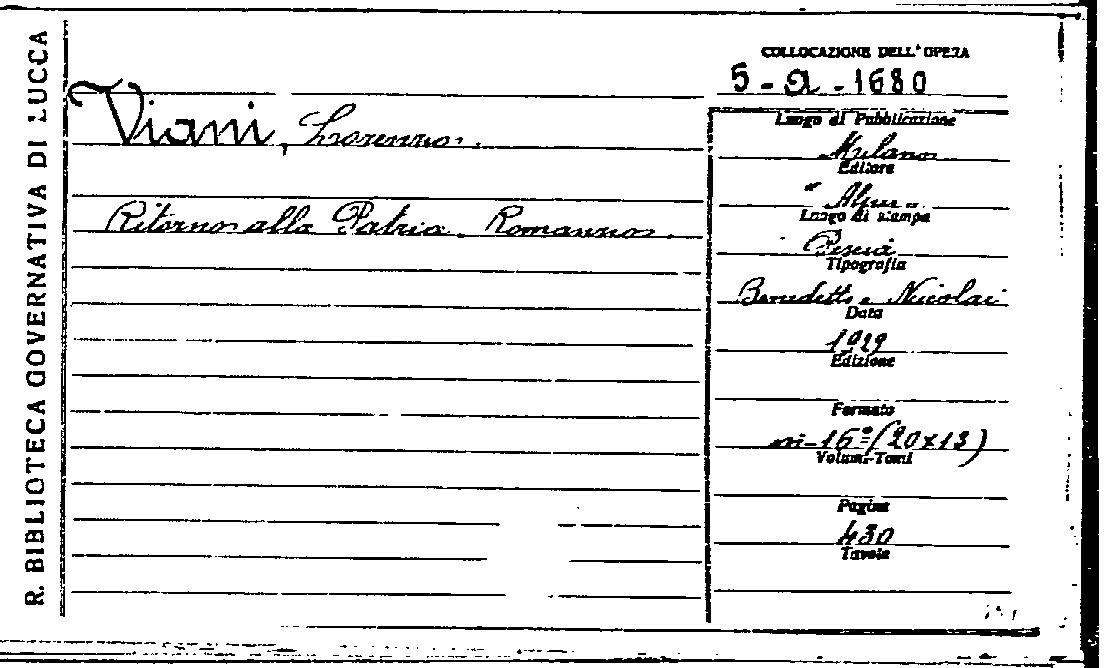 R. BIBLIOTECA GOVERNATIVA DI LUCCA
Viani, Lorenzo.
Ritorno alla Patria. Romanzo.
COLLOCAZIONE DELL'OPERA
5-a-1680
Luogo di Pubblicazione
Milano
Editore
"Alpes"
Luogo di stampa
Pescia
Tipografia
Benedetti e Nicolai
Data
1929
Edizione
Formato
in-16º (20x13)
Volumi-Tomi
Pagine
430
Tavole